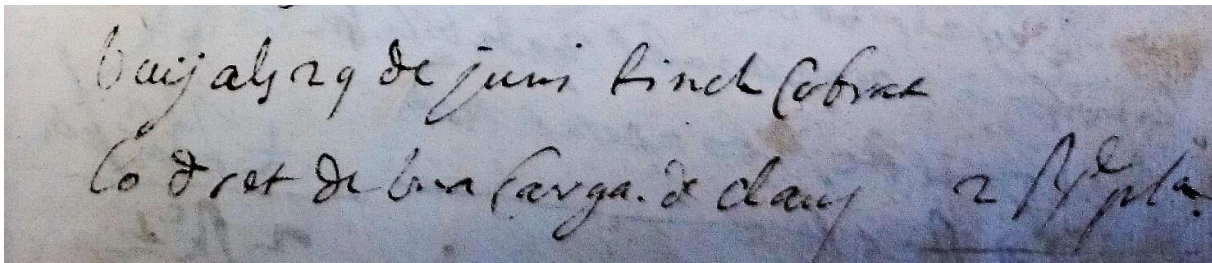 vuy als 29 de juni tinch cobrat
lo dret de una carga. de claus 2